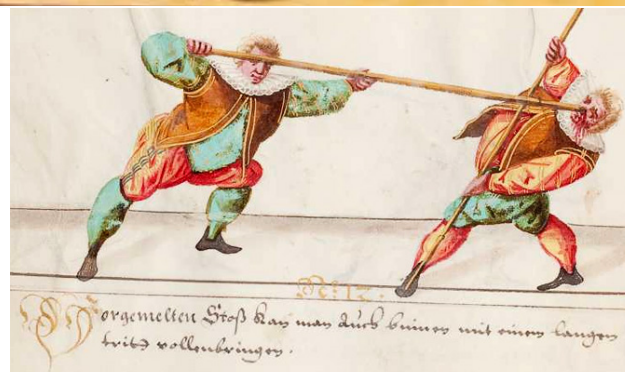 N: 12.
Vorgemelten Stoß kan man Auch binnen mit einem langen
tritt vollenbringen.